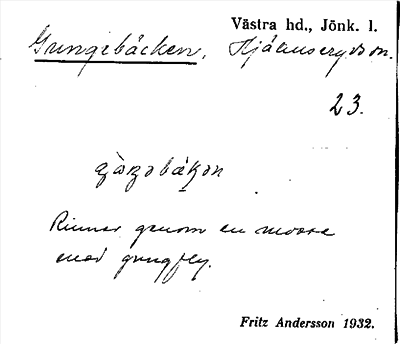 Västra hd., Jönk. l.
Gungebäcken,
23.
Rinner genom en mosse
med gungfly.
Fritz Andersson 1932.